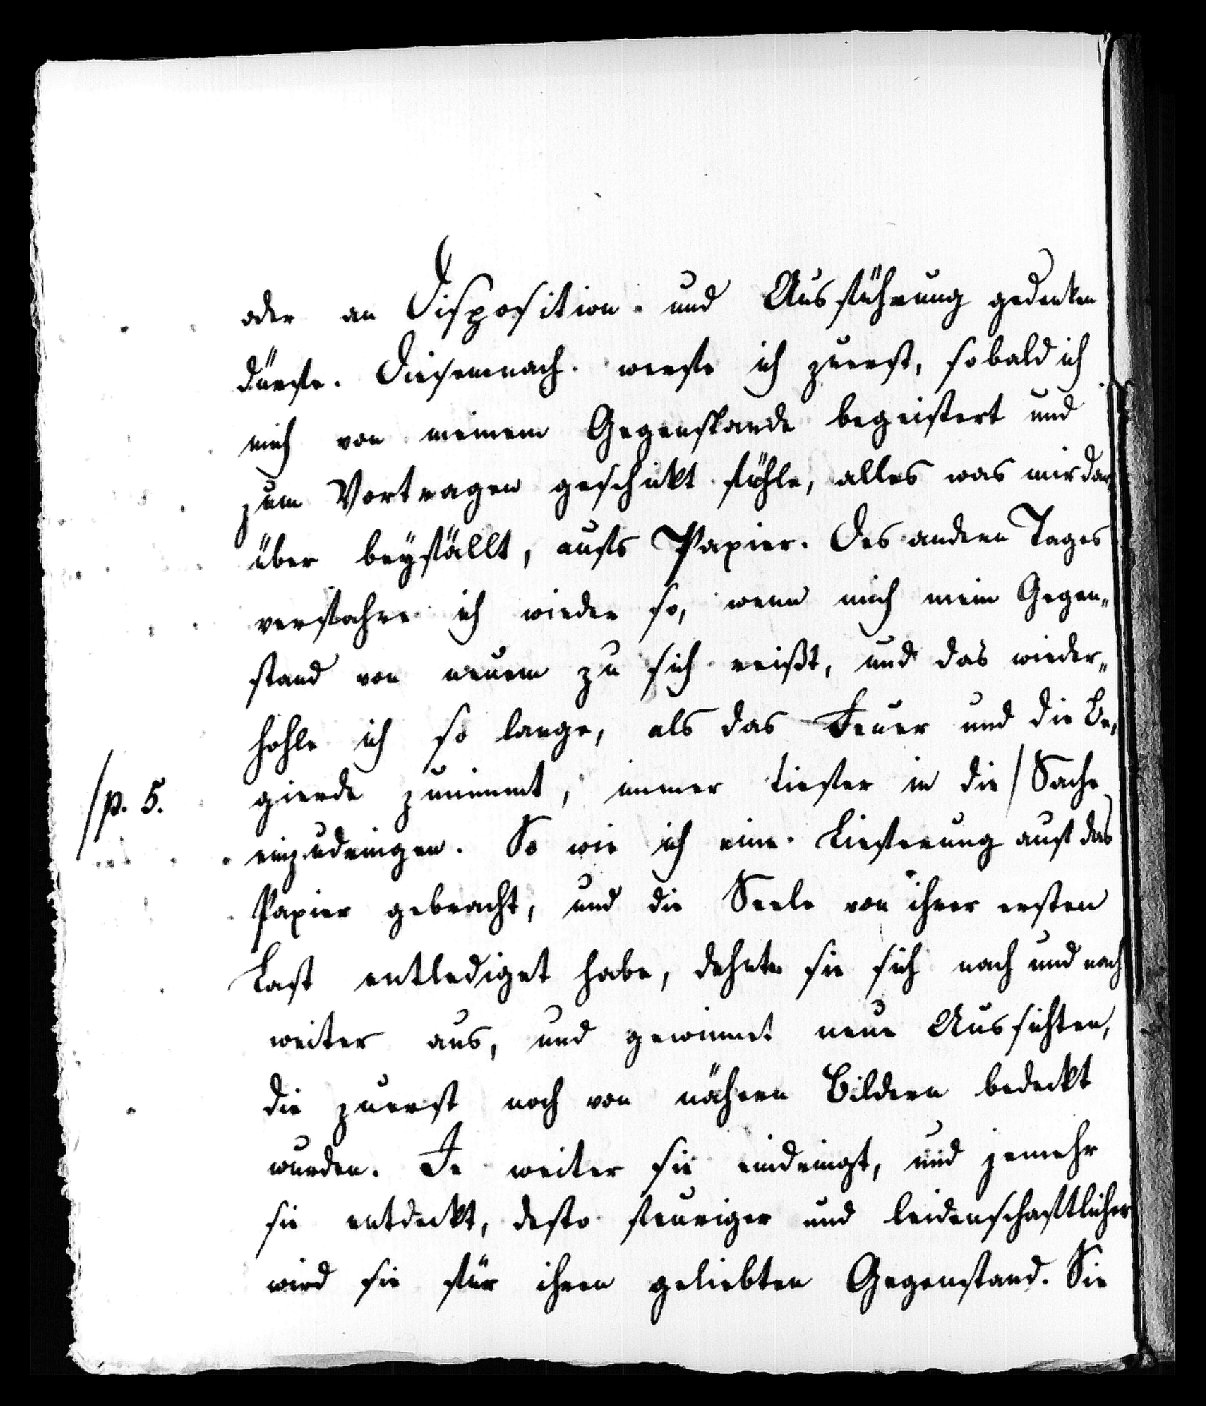 oder an Disposition und Ausführung gedenken
dürfte. Diesemnach werfe ich zuerst, sobald ich
mich von meinem Gegenstande begeistert und
zum Vortragen geschickt fühle, alles was mir dar-
über beyfällt, aufs Papier. Des andern Tages
verfahre ich wieder so, wenn mich mein Gegen-
stand von neuem zu sich reißt, und das wieder-
hohle ich so lange, als das Feuer und die Be-
gierde zunimmt, immer tiefer in die / Sache
/p. 5.
einzudringen. So wie ich eine Lieferung auf das
Papier gebracht, und die Seele von ihrer ersten
Last entlediget habe, dehnte sie sich nach und nach
weiter aus, und gewinnet neue Aussichten,
die zuerst noch von nähern Bildern bedeckt
wurden. Je weiter sie eindringt, und jemehr
sie entdeckt, desto feuriger und leidenschaftlicher
wird sie für ihren geliebten Gegenstand. Sie